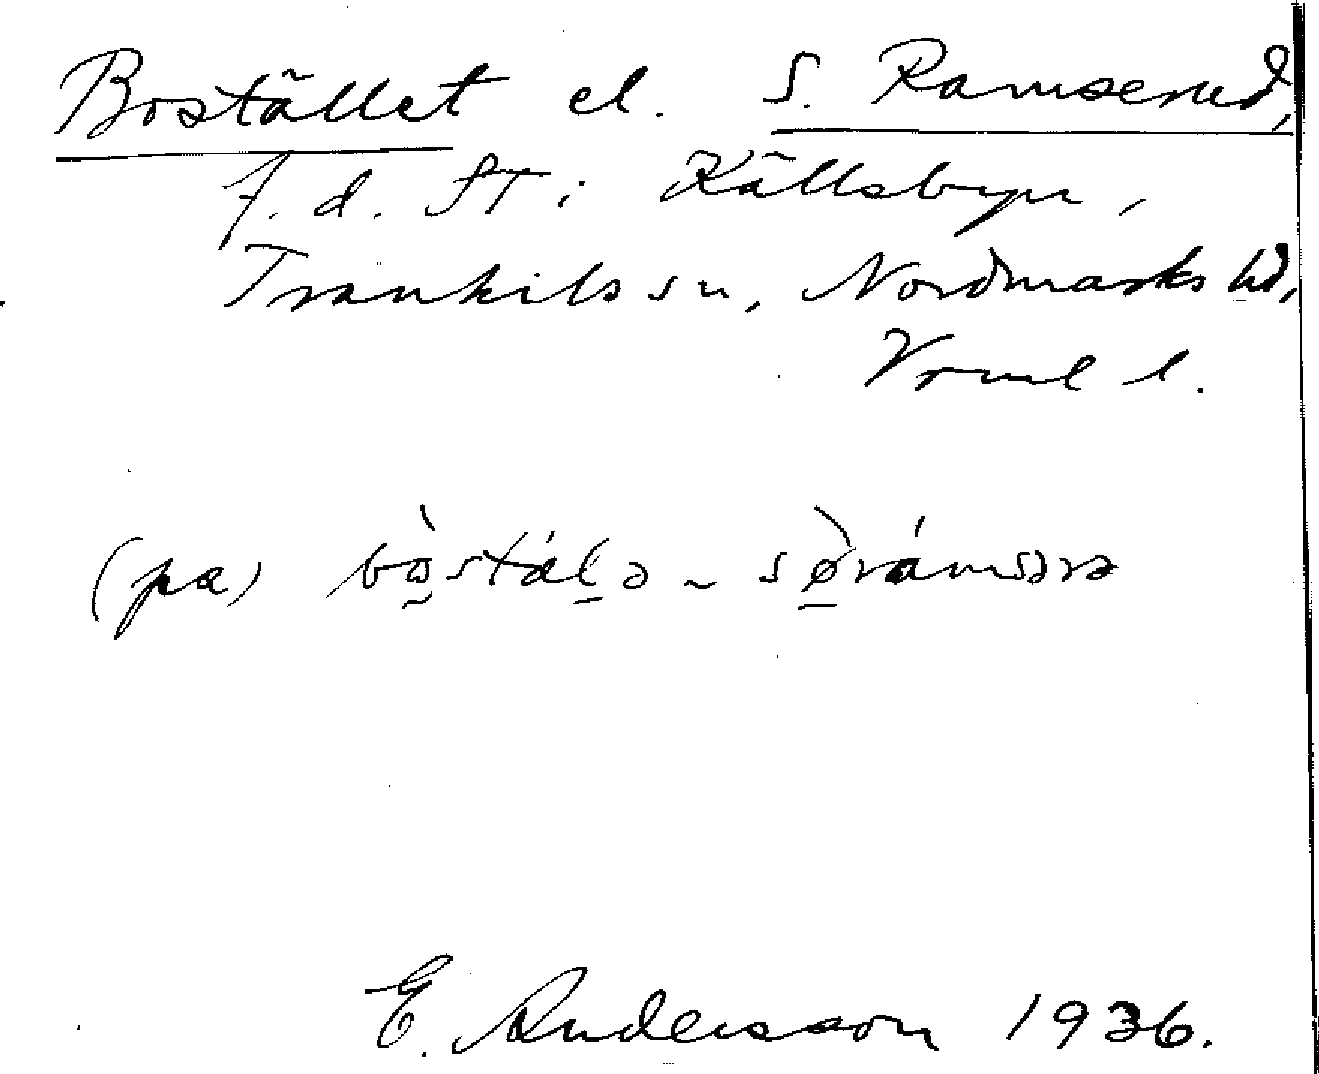 Bostället el. S. Ramserud,
f. d. ST i Källsbyn,
Trankils sn, Nordmarks hd,
Vrml l.
(på)
E. Andersson 1936.